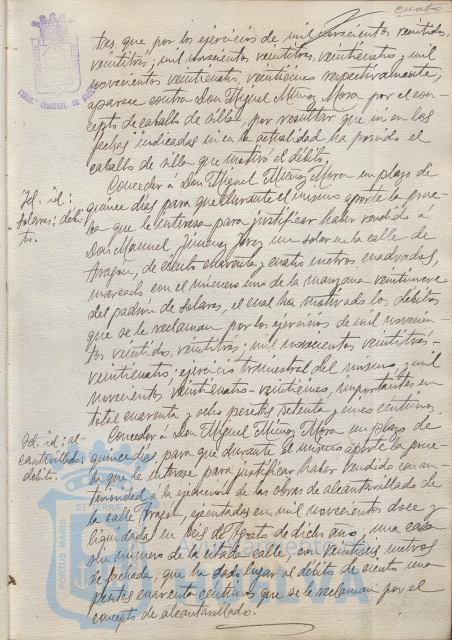 cuatro
tas que por los ejercicios de mil novecientos veintidos,
veintitres; mil novecientos veintitres, veinticuatro y mil
novecientos veinticuatro, veinticinco respectivamente,
aparece contra Don Miguel Muñoz Mora por el con-
cepto de caballo de silla, por resultar que ni en las
fechas indicadas ni en la actualidad ha poseido el
caballo de silla que motivó el débito.
Id. id:
solares; debi-
tos.
Conceder á Don Miguel Muñoz Mora un plazo de
quince dias para que durante el mismo aporte la prue-
ba que le interesa para justificar haber vendido a
Don Manuel Jimenez un solar en la calle de
Aragón, de ciento cuarenta y cuatro metros cuadrados,
marcado con el número uno de la manzana veintinueve
del padrón de solares, el cual ha motivado los débitos
que se le reclaman por los ejercicios de mil novecien-
tos veintidos, veintitres; mil novecientos veintitres-
veinticuatro; ejercicio trimestral del mismo y mil
novecientos veinticuatro-veinticinco, importantes en
total cuarenta y ocho pesetas setenta y cinco centimos.
Id. id: al-
cantarillado;
débito.
Conceder a Don Miguel Muñoz Mora un plazo de
quince dias para que durante el mismo aporte la prue-
ba que le interese para justificar haber vendido con an-
terioridad á la ejecución de las obras de alcantarillado de
la calle Aragon, ejecutadas en mil novecientos doce y
liquidadas en seis de Agosto de dicho año, una casa
sin número de la citada calle, con veintiseis metros
de fachada, que ha dado lugar al débito de ciento una
pesetas cuarenta centimos que se le reclaman por el
concepto de alcantarillado.
PORTUS MARIS
ET TERRÆ
HUELVA